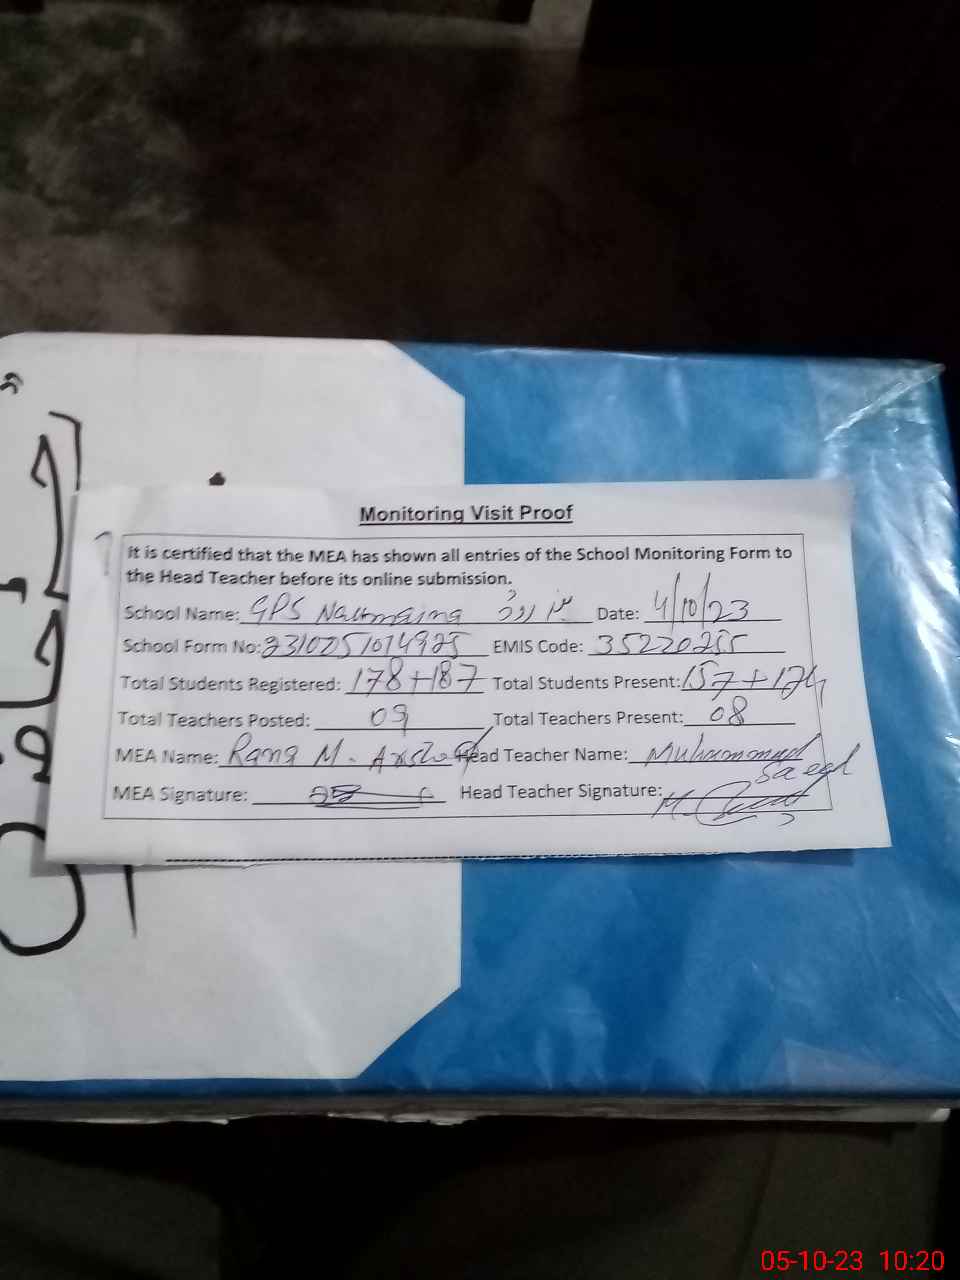 Monitoring Visit Proof
It is certified that the MEA has shown all entries of the School Monitoring Form to
the Head Teacher before its online submission.
School Name: GPS Date: 4/10/23
School Form No: EMIS Code: 35220255
Total Students Registered: 178+187 Total Students Present: 157+174
Total Teachers Posted: 09 Total Teachers Present: 08
MEA Name: Rana M. Arshad Head Teacher Name: Muhammad
Saeed
MEA Signature: Head Teacher Signature:
05-10-23 10:20